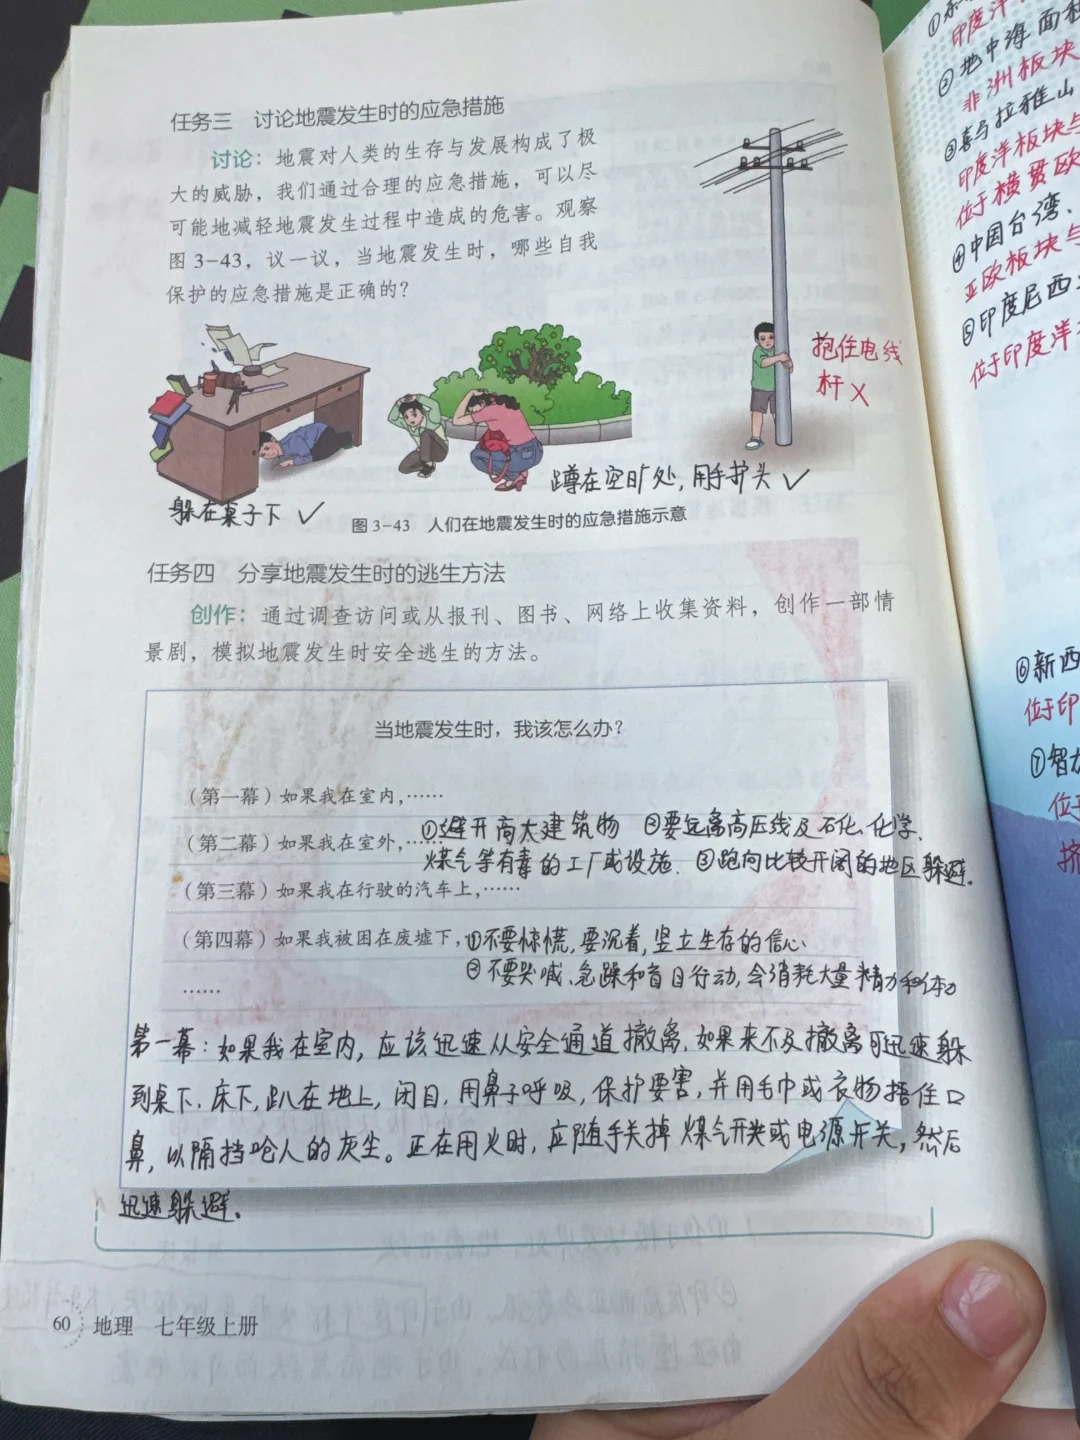 任务三 讨论地震发生时的应急措施
讨论：地震对人类的生存与发展构成了极
大的威胁，我们通过合理的应急措施，可以尽
可能地减轻地震发生过程中造成的危害。观察
图3-43，议一议，当地震发生时，哪些自我
保护的应急措施是正确的？
抱住电线
杆 X
蹲在空旷处，用手护头 ✓
躲在桌子下 ✓
图3-43 人们在地震发生时的应急措施示意
任务四 分享地震发生时的逃生方法
创作：通过调查访问或从报刊、图书、网络上收集资料，创作一部情
景剧，模拟地震发生时安全逃生的方法。
当地震发生时，我该怎么办？
（第一幕）如果我在室内，……
（第二幕）如果我在室外，……①避开高大建筑物 ②要远离高压线及石化、化学、
煤气等有毒的工厂或设施. ③跑向比较开阔的地区躲避.
（第三幕）如果我在行驶的汽车上，……
（第四幕）如果我被困在废墟下，①不要惊慌，要沉着，坚立生存的信心
②不要哭喊、急躁和盲目行动，会消耗大量精力和体力
……
第一幕：如果我在室内，应该迅速从安全通道撤离. 如果来不及撤离可迅速躲
到桌下、床下，趴在地上，闭目，用鼻子呼吸，保护要害，并用毛巾或衣物捂住口
鼻，以隔挡呛人的灰尘。正在用火时，应随手关掉煤气开关或电源开关，然后
迅速躲避.
60 地理 七年级上册
印度洋
②地中海面积
非洲板块
③喜马拉雅山
印度洋板块与
位于横贯欧
④中国台湾、
亚欧板块与
⑤印度尼西
位于印度洋
⑥新西
位于印
⑦智
位于
挤